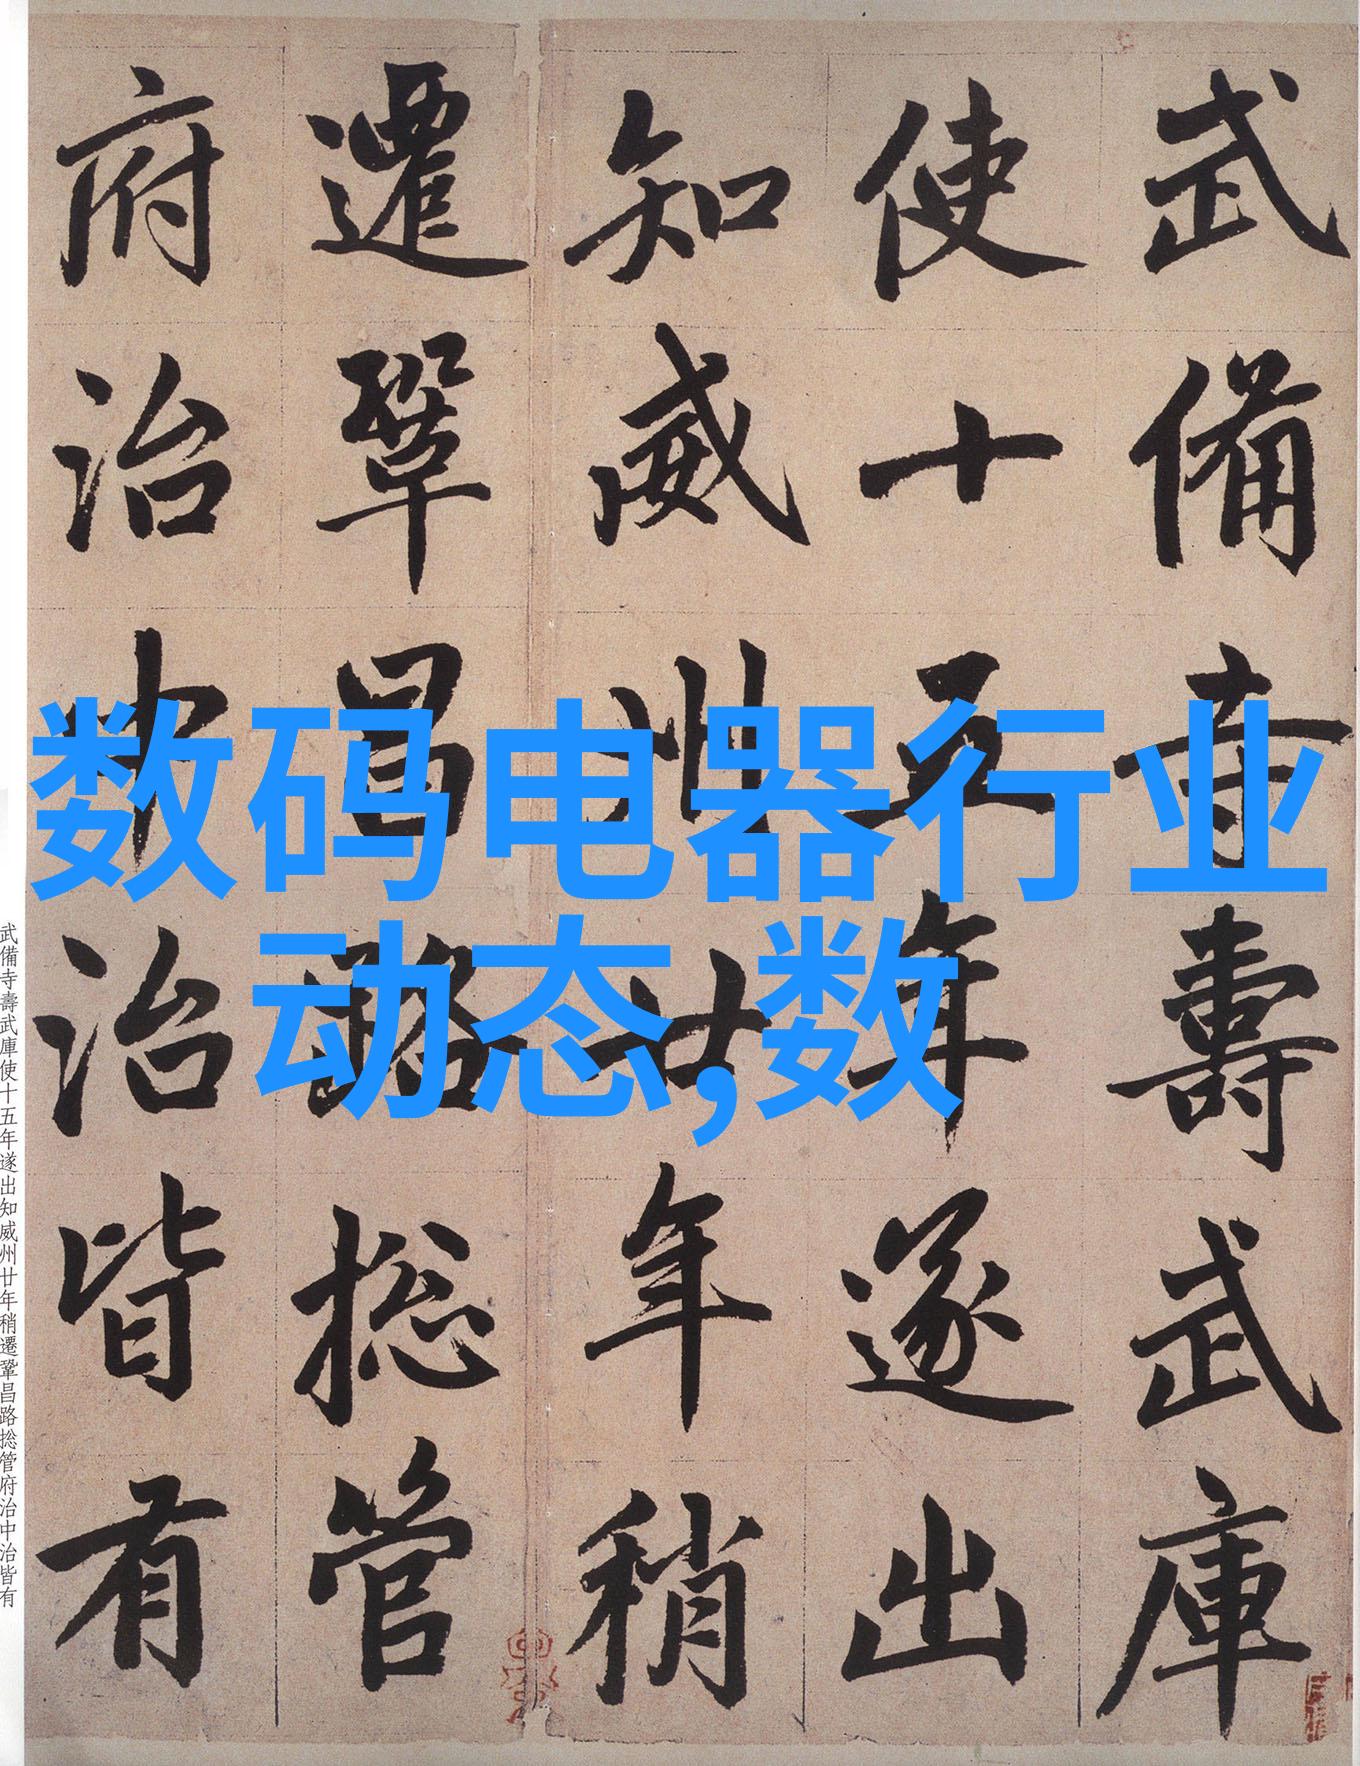 武備寺壽武庫
使十五年遂出
知威州廿年稍
遷鞏昌路捴管
府治中治皆有
数码电器行业
动态,数
武備寺壽武庫使十五年遂出知威州廿年稍遷鞏昌路捴管府治中治皆有